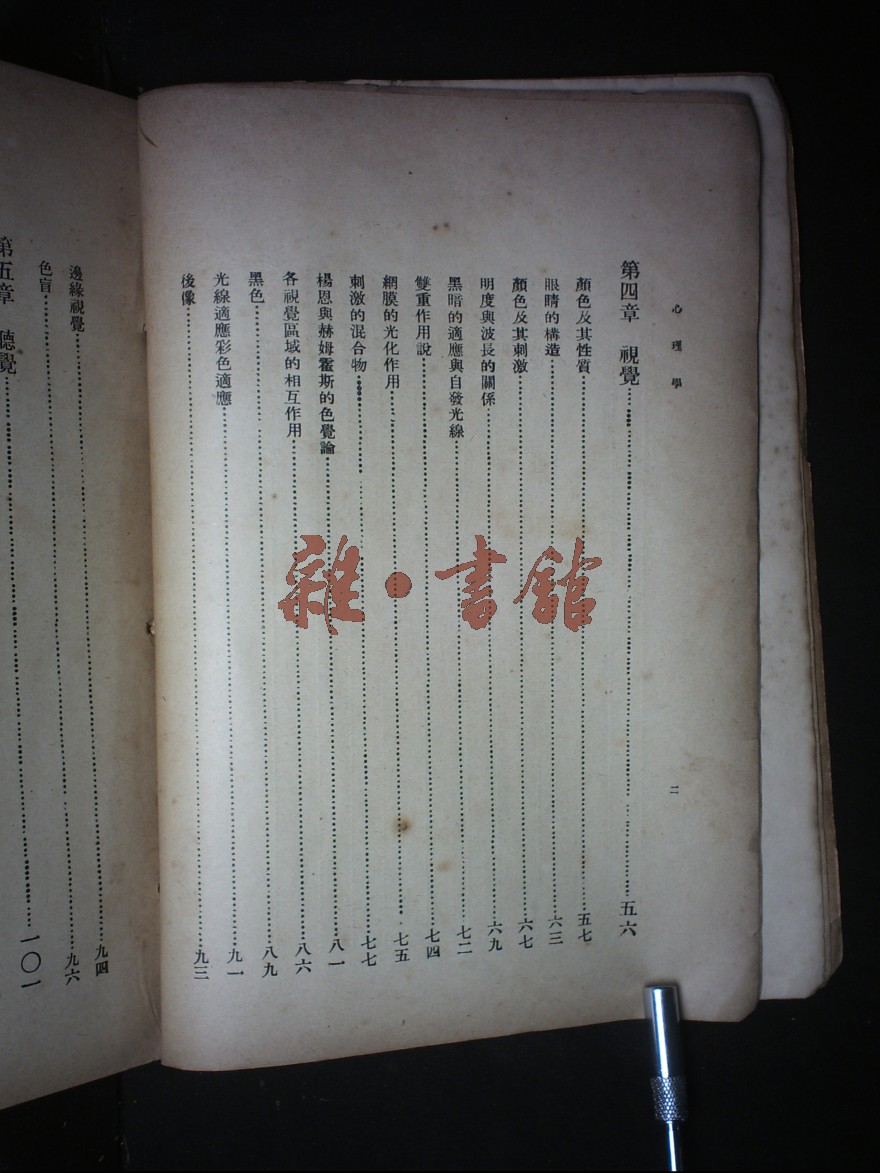 心理學
二
第四章 視覺……五六
顏色及其性質……五七
眼睛的構造……六三
顏色及其刺激……六七
明度與波長的關係……六九
黑暗的適應與自發光線……七二
雙重作用說……七四
網膜的光化作用……七五
刺激的混合物……七七
楊恩與赫姆霍斯的色覺論……八一
各視覺區域的相互作用……八六
黑色……八九
光線適應彩色適應……九一
後像……九三
邊緣視覺……九四
色盲……九六
第五章 聽覺……一〇一
雜·書館